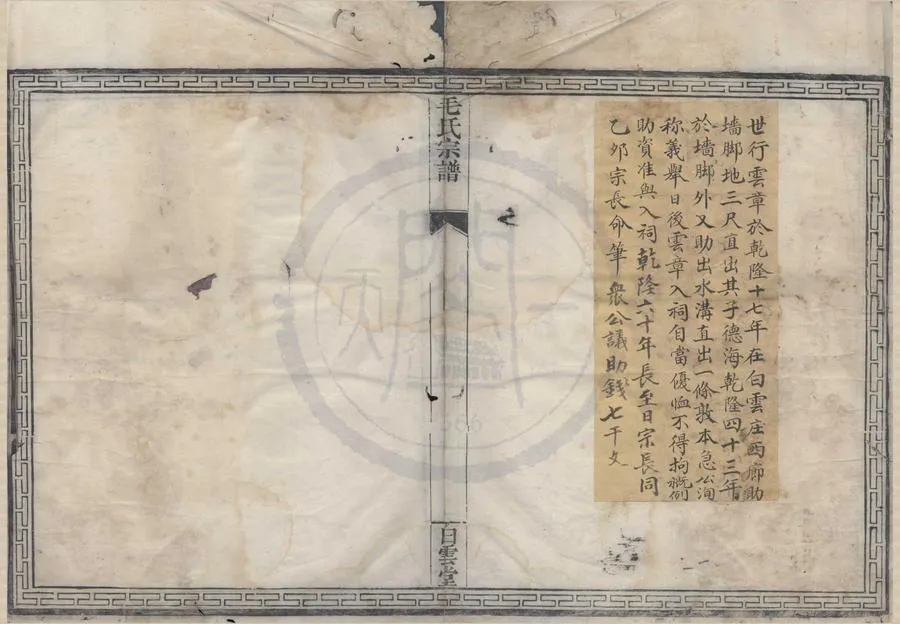 世行雲章於乾隆十七年在白雲庄西廊助
墙脚地三尺直出其子德海乾隆四十三年
於墙脚外又助出水溝直出一條敦本急公洵
称義舉日後雲章入祠自當優恤不得拘概例
助資准與入祠乾隆六十年長至日宗長同
乙夘宗長命筆衆公議助錢七千文
毛氏宗譜
白雲堂